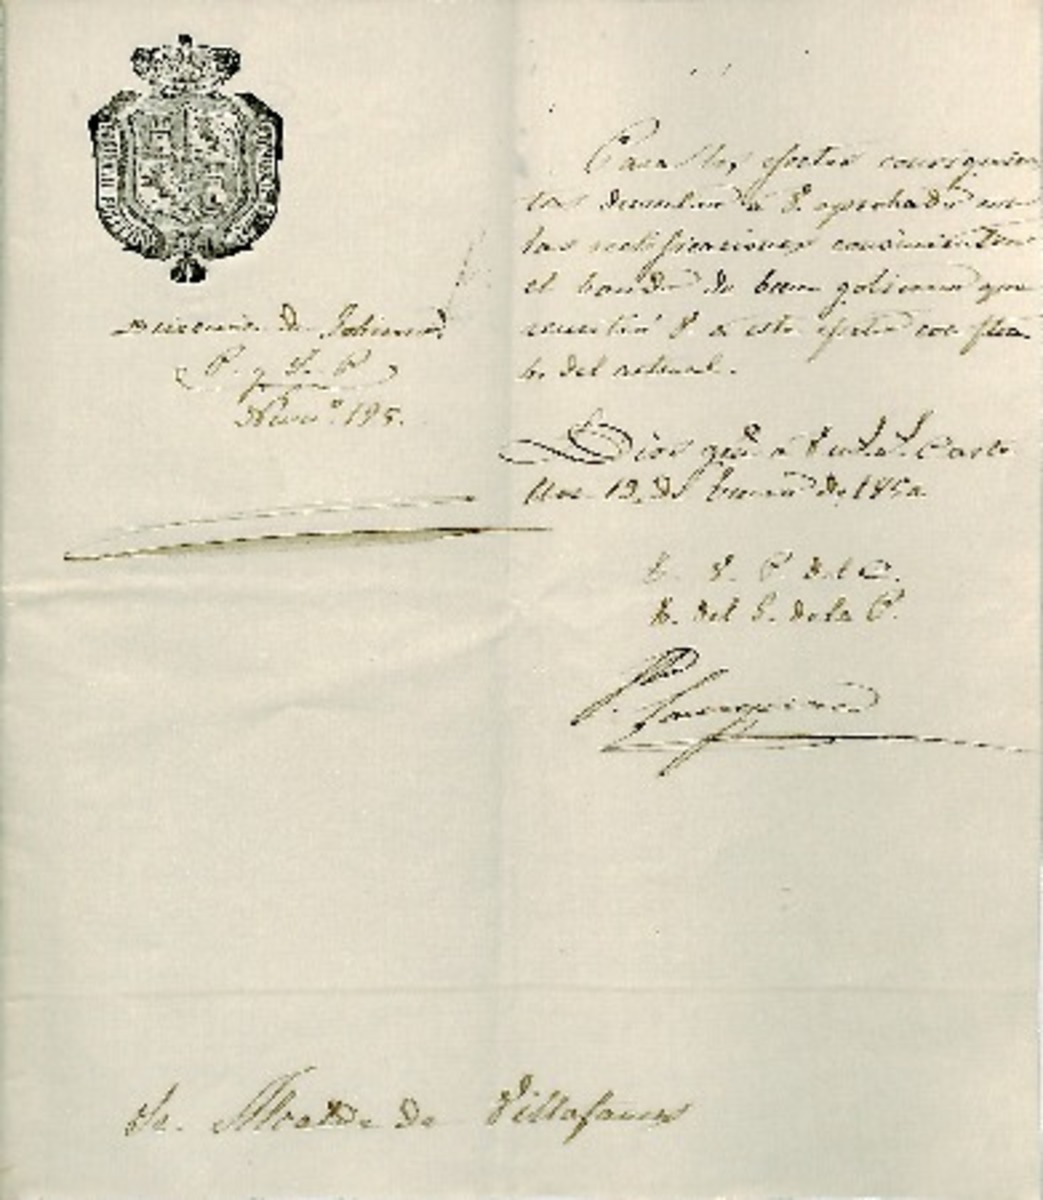 Direccion de Gobierno
P. y S. P.
Num.º 195.
Para los efectos consiguien
tes devuelvo á V. aprobado con
las rectificaciones convenientes
el bando de buen gobierno que
remitió V. a este efecto con fecha
del actual.
Dios gue. á V. m.s a.s Caste
llon 12 de Enero de 1850
E. V. P. del C.
E. del G. de la P.
Sr. Alcalde de Villafames